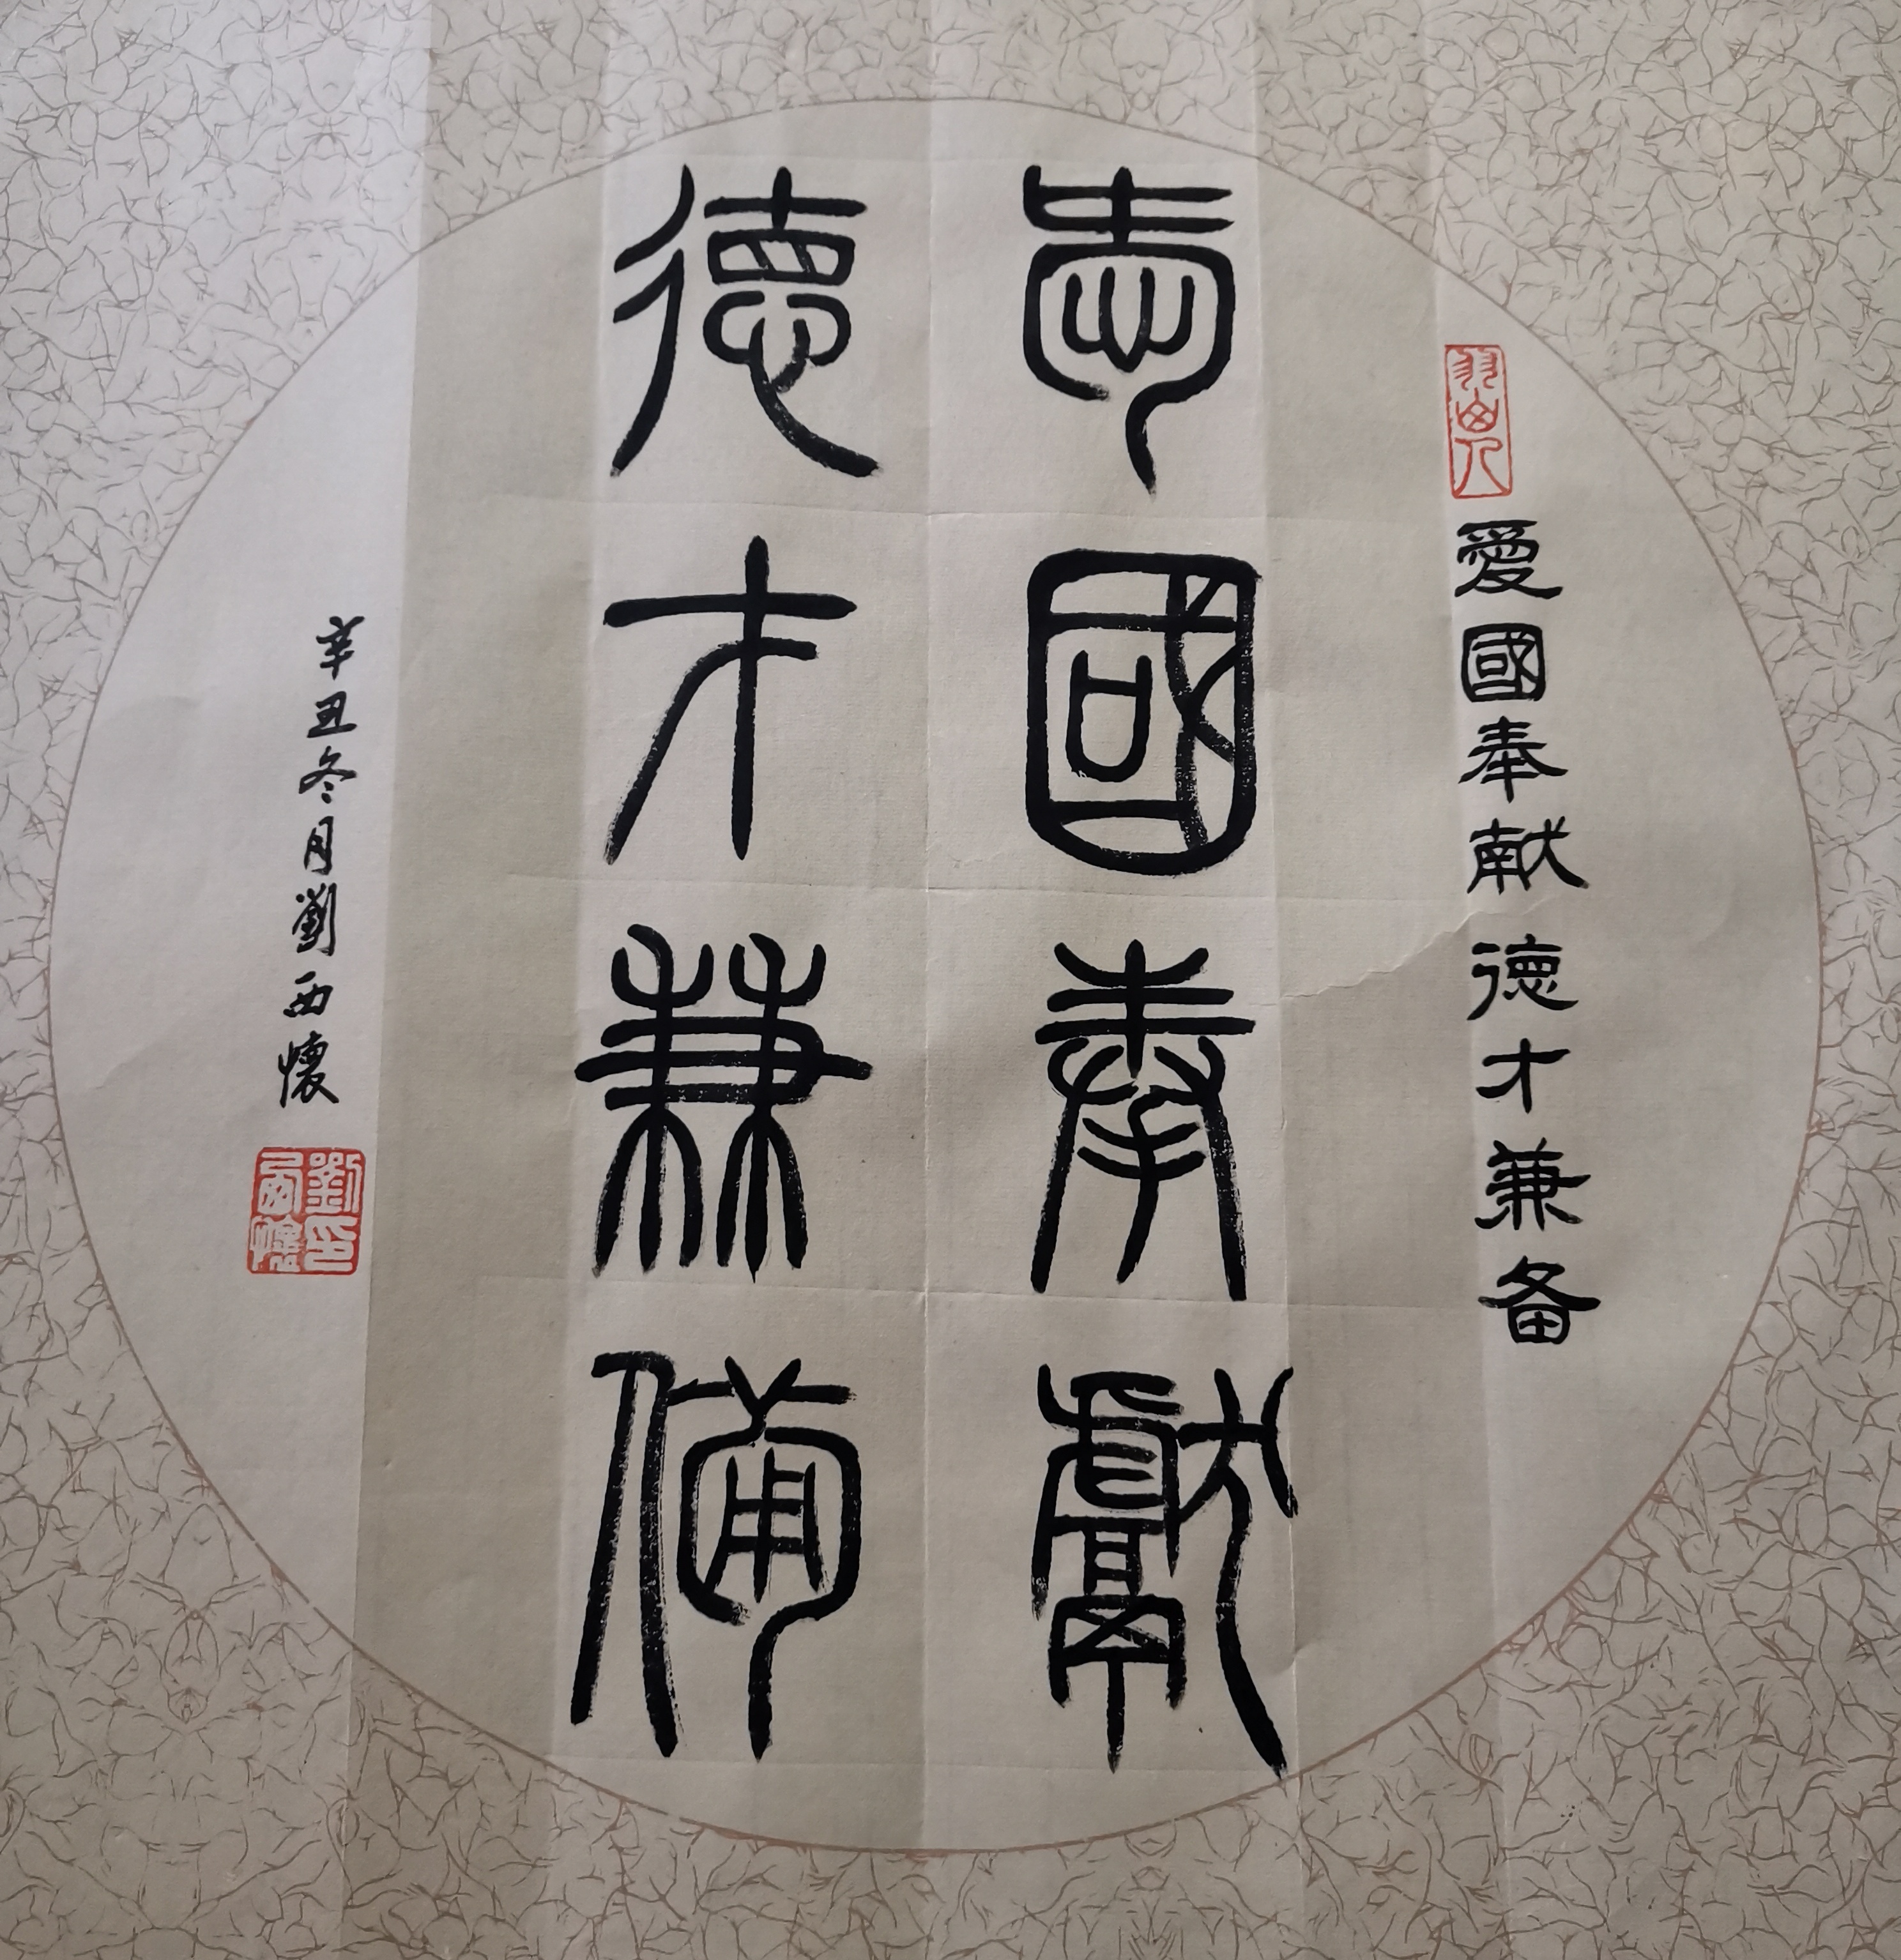 愛國奉献德才兼备
㤅國奉獻
德才兼備
辛丑冬月劉西懷
劉印西懷